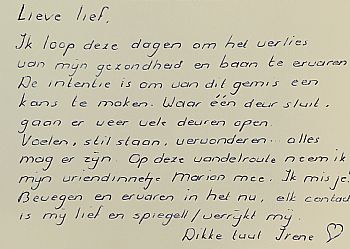 Lieve lief,
Ik loop deze dagen om het verlies
van mijn gezondheid en baan te ervaren
De intentie is om van dit gemis een
kans te maken. Waar één deur sluit,
gaan er weer vele deuren open.
Voelen, stil staan, verwonderen... alles
mag er zijn. Op deze wandelroute neem ik
mijn vriendinnetje Marion mee. Ik mis je!
Bewegen en ervaren in het nu, elk contact
is my lief en spiegelt/verrijkt my.
Dikke tuut Irene ♡